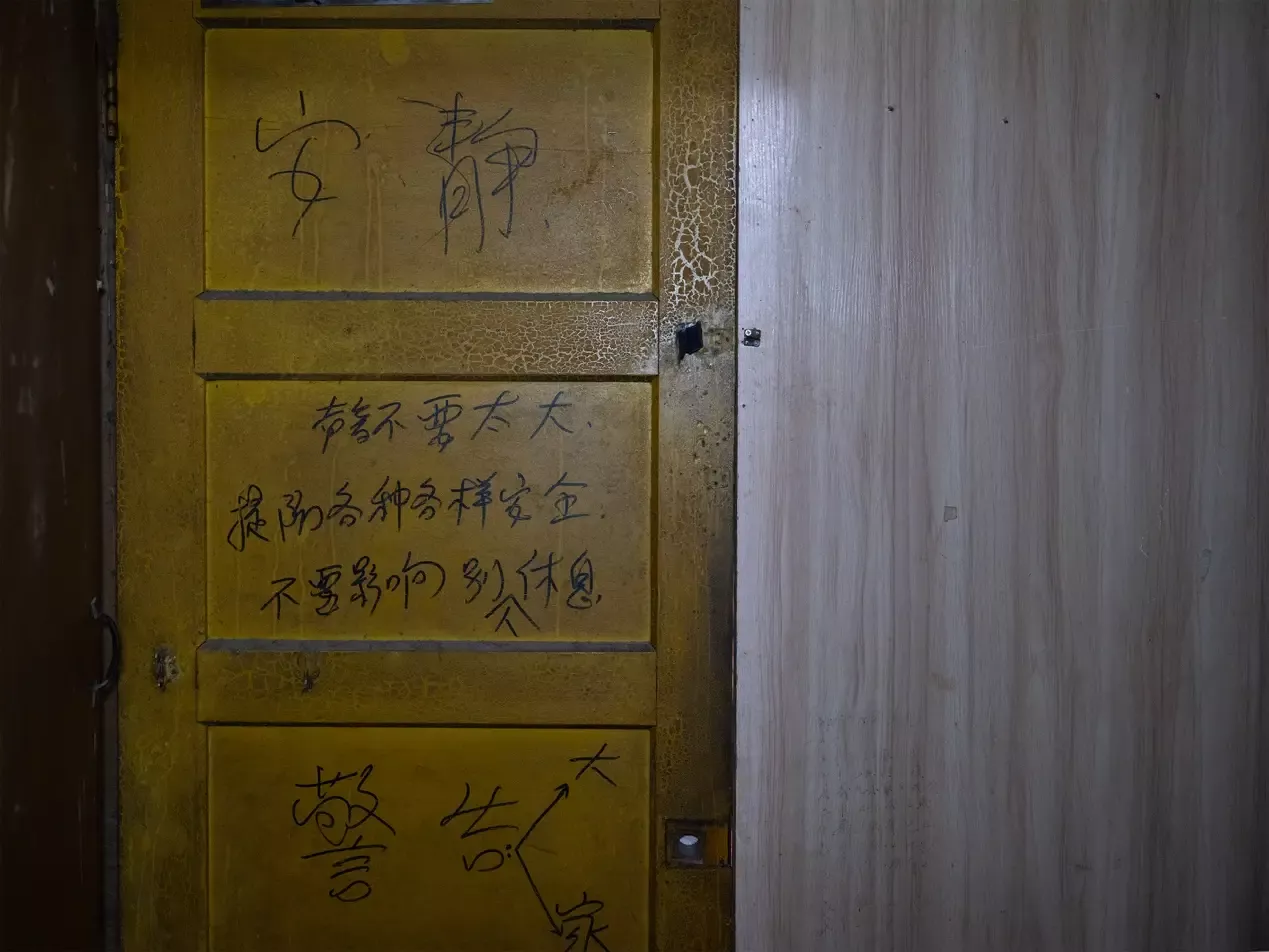 安静
音不要太大
提防各种各样安全
不要影响别人休息
警告:大
家